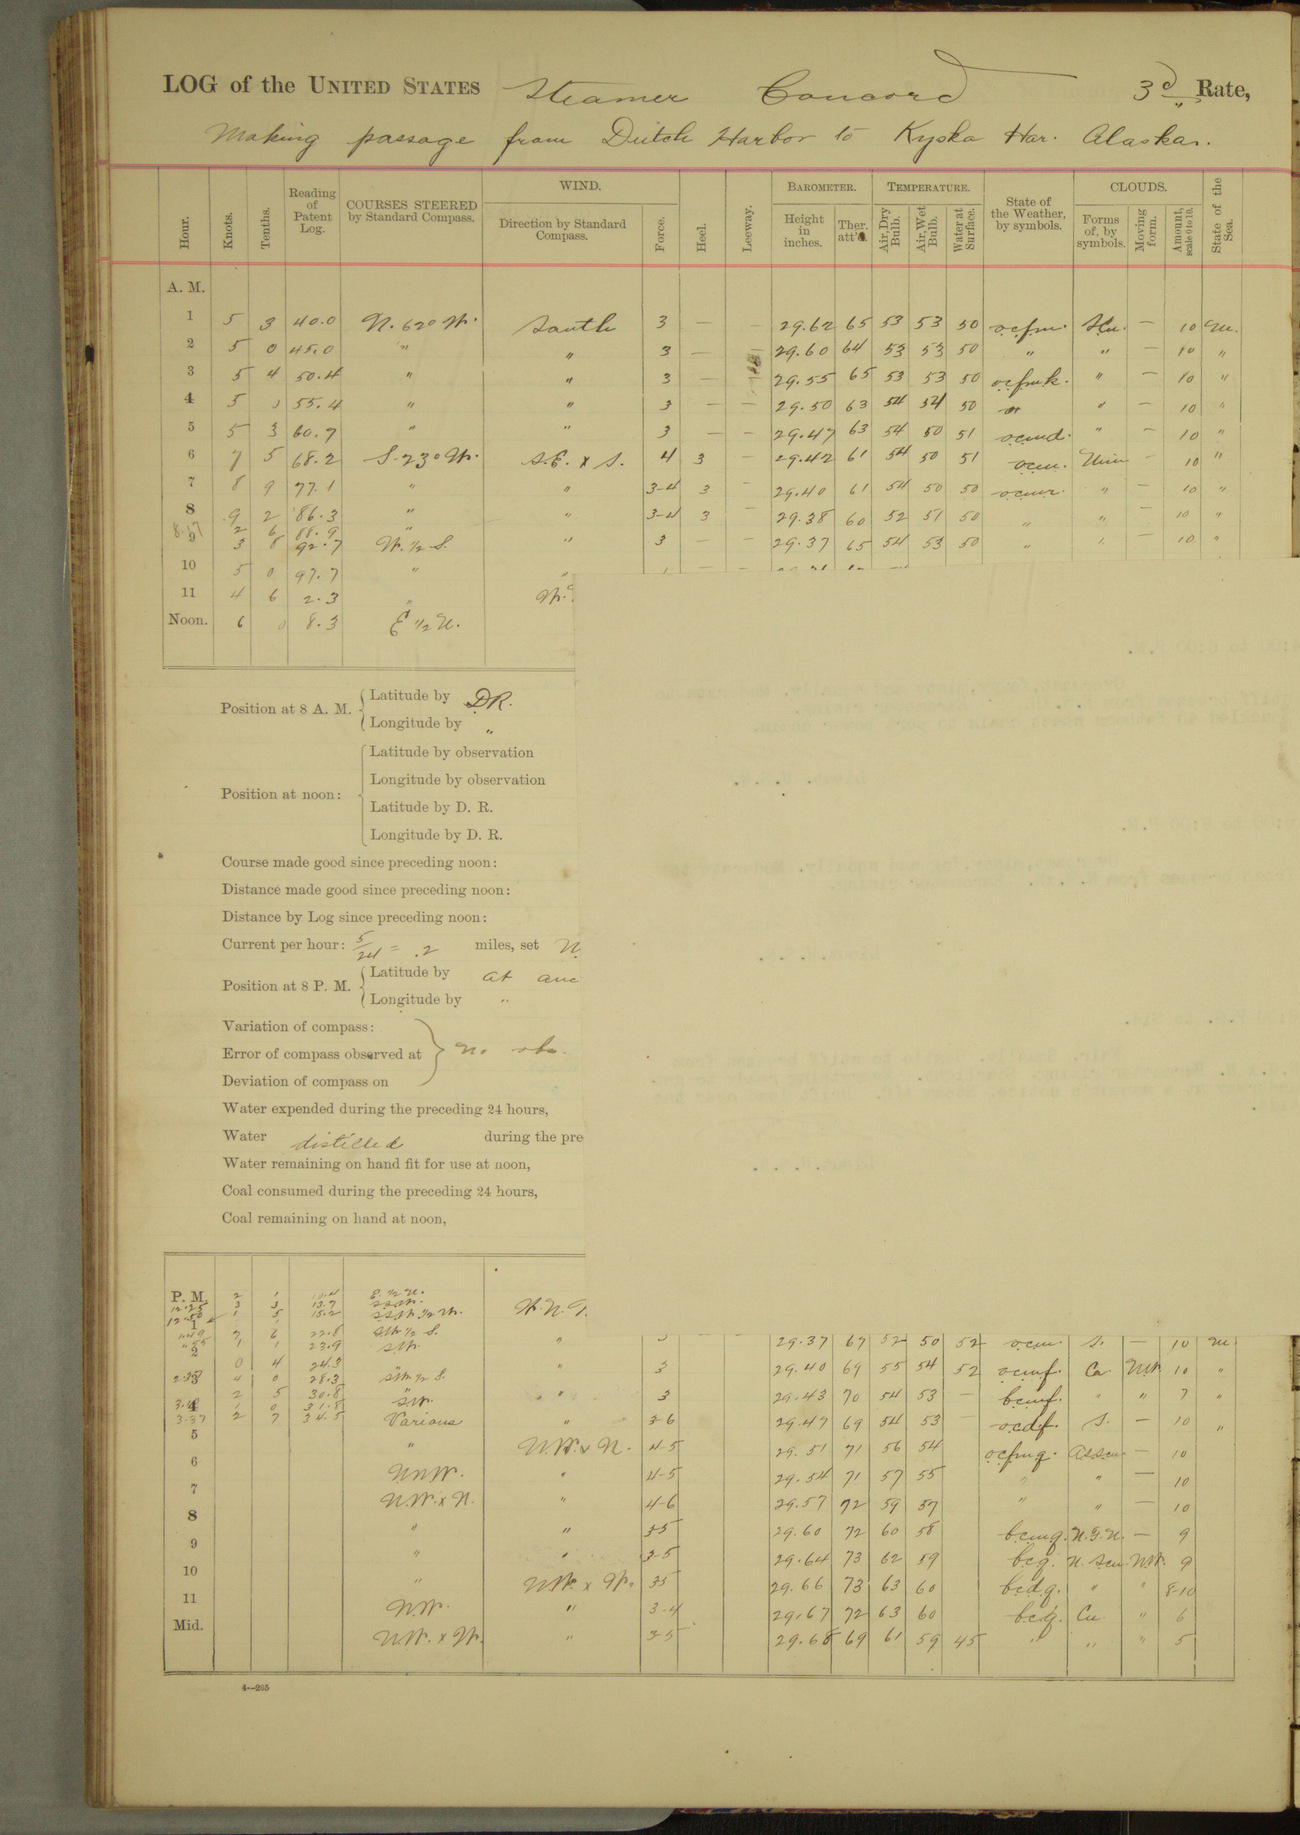 LOG of the UNITED STATES Steamer Concord 3d Rate,
Making passage from Dutch Harbor to Kyska Har. Alaska.
Hour. Knots. Tenths. Reading of Patent Log. COURSES STEERED by Standard Compass. WIND. Direction by Standard Compass. Force. Heel. Leeway. BAROMETER. Height in inches. Ther. att'd. TEMPERATURE. Air, Dry Bulb. Air, Wet Bulb. Water at Surface. State of the Weather, by symbols. CLOUDS. Forms of, by symbols. Moving form. Amount, scale 0 to 10. State of the Sea.
A. M.
1 5 3 40.0 N. 62° W. South 3 — — 29.62 65 53 53 50 ocfm. — 10 m.
2 5 0 45.0 " " 3 — — 29.60 64 53 53 50 " " — 10 "
3 5 4 50.4 " " 3 — 29.55 65 53 53 50 " — 10 "
4 5 55.4 " " 3 — — 29.50 63 54 54 50 " — 10 "
5 5 3 60.7 " " 3 — — 29.47 63 54 50 51 ocmd. " — 10 "
6 7 5 68.2 S. 23° W. S.E. x S. 4 3 — 29.42 61 54 50 51 ocm. — 10 "
7 8 9 77.1 " " 3-4 3 — 29.40 61 54 50 50 ocmr. " — 10 "
8 9 2 86.3 " " 3-4 3 29.38 60 52 51 50 " " — 10 "
2 6 88.9 "
9 3 8 92.7 W. ½ S. " 3 — — 29.37 65 54 53 50 " — 10 "
10 5 0 97.7 "
11 4 6 2.3 " W.
Noon. 6 0 8.3 E ½ N.
Position at 8 A. M. Latitude by DR.
Longitude by "
Position at noon: Latitude by observation
Longitude by observation
Latitude by D. R.
Longitude by D. R.
Course made good since preceding noon:
Distance made good since preceding noon:
Distance by Log since preceding noon:
Current per hour: 5/24 = .2 miles, set N.
Position at 8 P. M. Latitude by at anc
Longitude by "
Variation of compass:
Error of compass observed at No obs.
Deviation of compass on
Water expended during the preceding 24 hours,
Water distilled during the pre
Water remaining on hand fit for use at noon,
Coal consumed during the preceding 24 hours,
Coal remaining on hand at noon,
P. M. 2 1 E. ½ N.
12.25 3 3 13.7
12.50 1 5 15.2 W.N.
1
1.49 7 6 22.8 SW ½ S. " 29.37 67 52 50 52 ocm. S. — 10 m
1 1 23.9 SW.
2 0 4 24.3 " 3 29.40 69 55 54 52 ocmf. Cu NW. 10 "
3 4 0 28.3 SW ½ S.
2 5 30.8 " " 3 29.43 70 54 53 — bcmf. " " 7 "
4 1 0 31.8 SW.
3.37 2 7 34.5 Various " 3-6 29.47 69 54 53 — ocdf. S. — 10 "
5 " N.W. x N. 4-5 29.51 71 56 54 ocfmq. — 10
6 NNW. " 4-5 29.54 71 57 55 " " — 10
7 N.W. x N. " 4-6 29.57 72 59 57 " " — 10
8 " " 3-5 29.60 72 60 58 bcmq. — 9
9 " " 3-5 29.64 73 62 59 bcq. NW. 9
10 " NW. x W. 3-5 29.66 73 63 60 bcdq. " " 8-10
11 N.W. " 3-4 29.67 72 63 60 bcq. Cu. " 6
Mid. N.W. x W. " 3-5 29.68 69 61 59 45 " " " 5
4—205